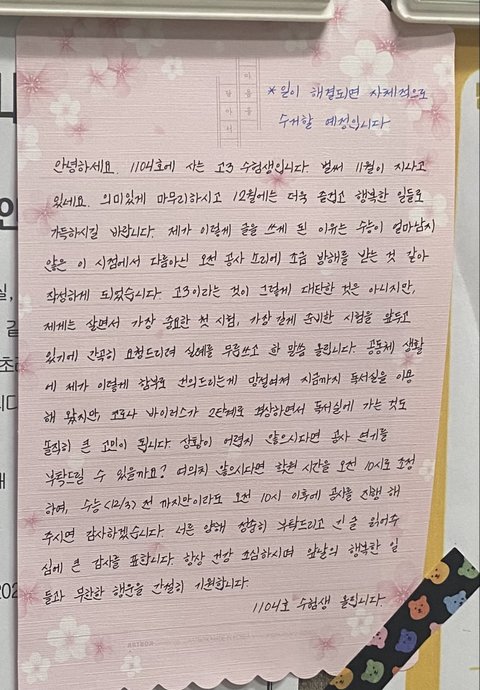 마음을
담아서
*일이 해결되면 자체적으로
수거할 예정입니다
안녕하세요. 1104호에 사는 고3 수험생입니다. 벌써 11월이 지나고
있네요. 의미있게 마무리하시고 12월에는 더욱 즐겁고 행복한 일들로
가득하시길 바랍니다. 제가 이렇게 글을 쓰게 된 이유는 수능이 얼마남지
않은 이 시점에서 다름아닌 오전 공사 소리에 조금 방해를 받는 것 같아
작성하게 되었습니다. 고3이라는 것이 그렇게 대단한 것은 아니지만,
제게는 살면서 가장 중요한 첫 시험, 가장 길게 준비한 시험을 앞두고
있기에 간곡히 요청드리려 실례를 무릅쓰고 한 말씀 올립니다. 공동체 생활
에 제가 이렇게 함부로 건의드리는게 망설여져 지금까지 독서실을 이용
해 왔지만, 코로나 바이러스가 2단계로 격상하면서 독서실에 가는 것도
솔직히 큰 고민이 됩니다. 상황이 어렵지 않으시다면 공사 연기를
부탁드릴 수 있을까요? 여의치 않으시다면 학원 시간을 오전 10시로 조정
하여, 수능(12/3) 전 까지만이라도 오전 10시 이후에 공사를 진행 해
주시면 감사하겠습니다. 너른 양해 정중히 부탁드리고 긴 글 읽어주
심에 큰 감사를 표합니다. 항상 건강 조심하시며 앞날의 행복한 일
들과 무한한 행운을 간절히 기원합니다.
1104호 수험생 올립니다.
ARTBOX